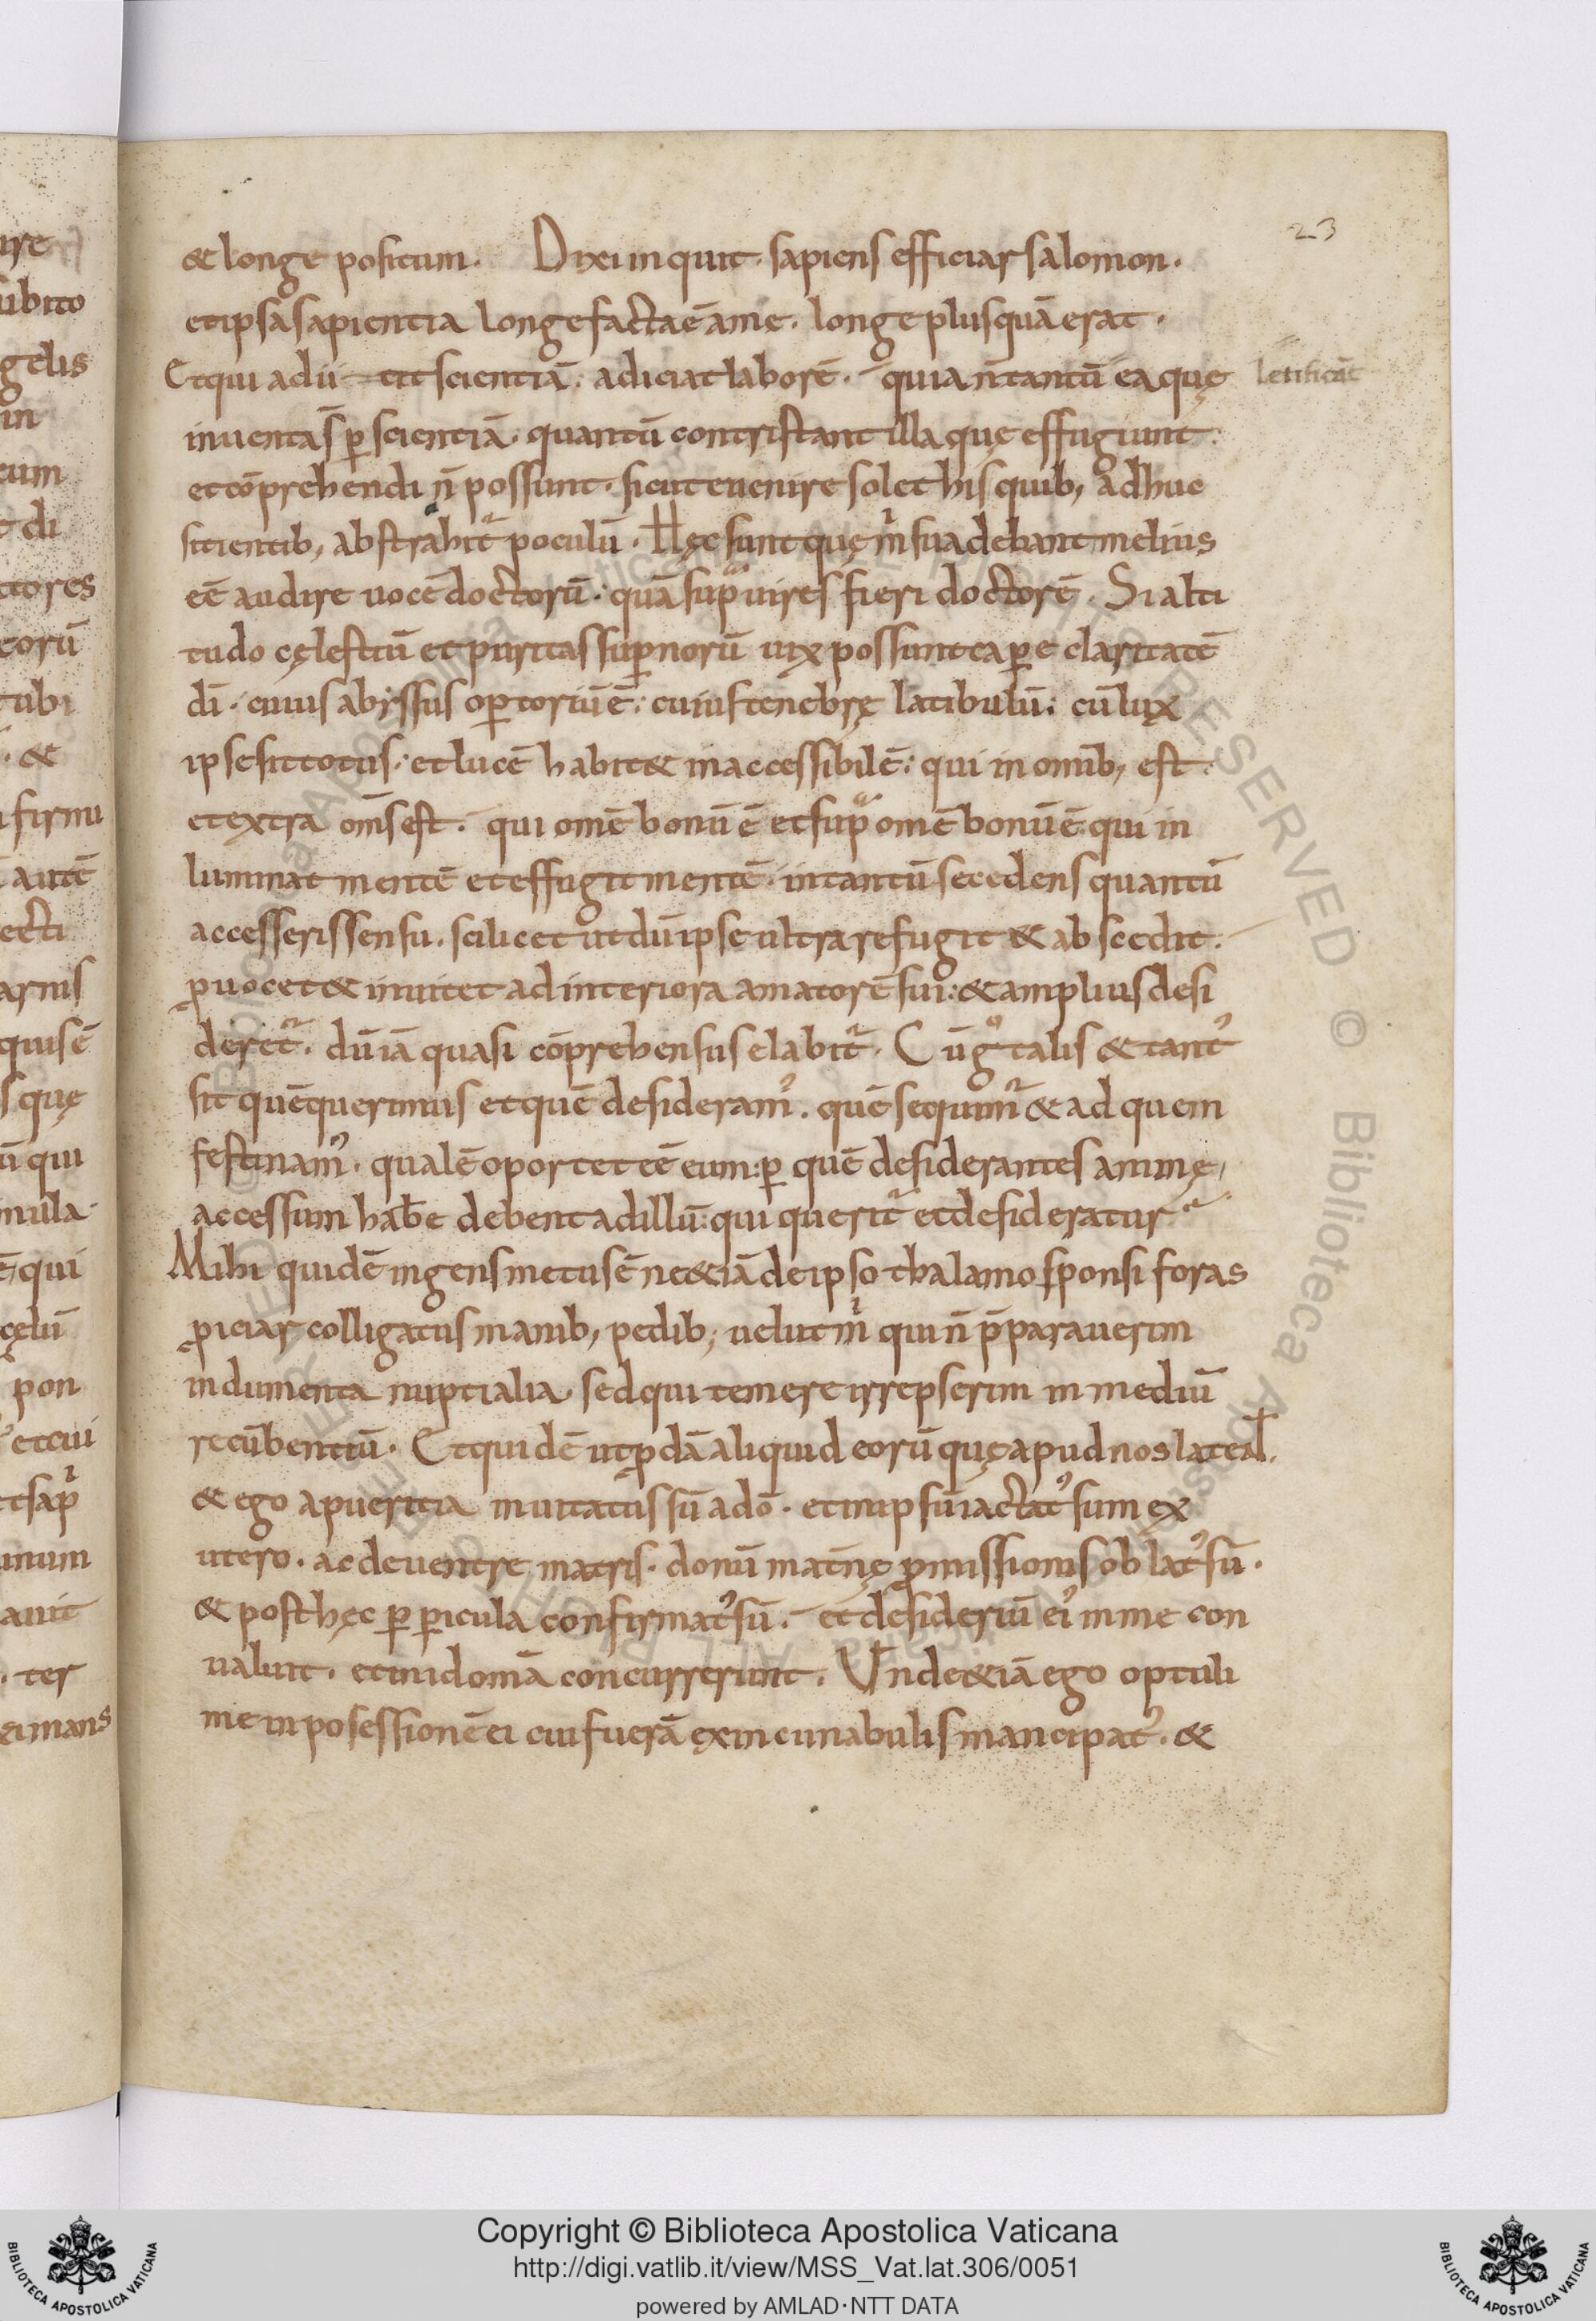 23
& longe positum. Dixi inquit. sapiens efficiar salomon.
et ipsa sapientia longe facta ē a me. longe plus quā erat.
Et qui adii cit scientiā: adiciat laborē. quia n̄ tantū ea quę
letificāt
inuenta s̄ ꝑ scientiā. quantū contristant illa quę effugiunt.
et cōprehendi n̄ possunt. sicut euenire solet his quib; adhuc
sitientib; abstrahit᷑ poculū. Hęc sunt quę mͥ suadebant melius
eē audire uocē doctorū: quā supͣ uires fieri doctorē. Si alti
tudo cęlestiū et puritas suꝑnorū uix possunt capere claritatē
dī. cuius abyssus oꝑtoriū ē: cuius tenebrę latibulū: cū lux
ipse sit totus: et lucē habit& inaccessibilē: qui in omīb; est.
et extra om̄s est. qui omē bonū ē et supͣ omē bonū ē qui in
luminat mentē et effugit mentē. in tantū secedens quantū
accesseris sensu. scilicet ut dū ipse ultra refugit & abscedit.
ꝓuocet & inuitet ad interiora amatorē sui: & amplius desi
deret᷑. dū iā quasi cōprehensus elabit᷑. Cū gͦ talis & tantꝰ
sit quē querimus et quē desideramꝰ. quē sequim᷑ & ad quem
festinamꝰ. qualē oportet eē eum: ꝑ quē desiderantes animę,
accessum hab̄e debent ad illū: qui querit᷑ et desideratur
Mihi quidē ingens metus ē ne &iā de ipso thalamo sponsi foras
ꝓiciar colligatus manib; pedib; uelut mͥ qui n̄ p̄parauerim
indumenta nuptialia. sed qui temere irrepserim in mediū
recūbentiū. Et quidē ut ꝓdā aliquid eorū quę apud nos lateāt.
& ego a pueritia inuitatus sū a dō. et in ipsū iactatꝰ sum ex
utero. ac de uentre matris. donū mat̄nę ꝓmissionis oblatꝰ sū.
& post hęc ꝑ ꝑicula confirmatꝰ sū. et desideriū eiꝰ in me con
ualuit. et in idomā concurrerunt. Vnde &iā ego optuli
me in posessionē ei cui fuerā ex in cunabulis mancipatꝰ. &
Copyright © Biblioteca Apostolica Vaticana
http://digi.vatlib.it/view/MSS_Vat.lat.306/0051
powered by AMLAD·NTT DATA